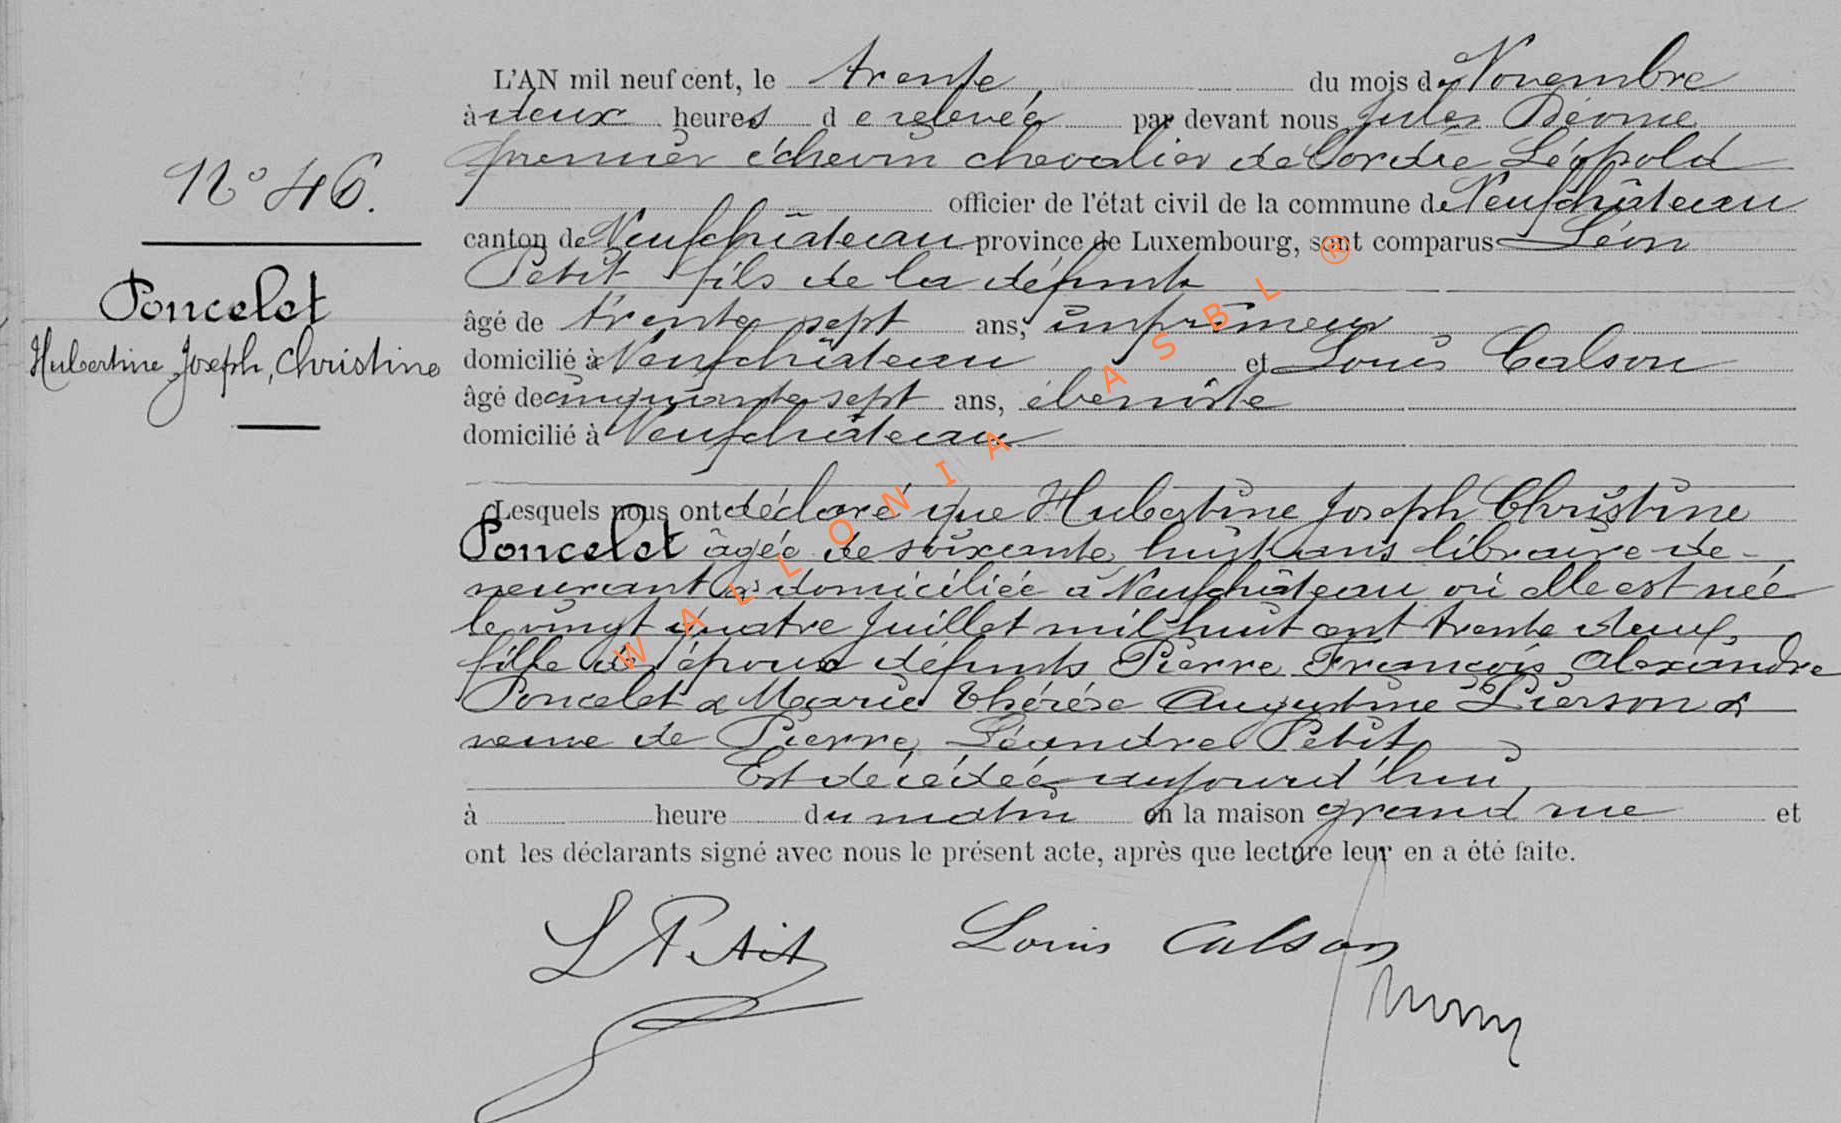 L'AN mil neuf cent, le trente du mois de Novembre
à deux heures de relevée par devant nous Jules
premier échevin chevalier de l'ordre Léopold
N° 46.
officier de l'état civil de la commune de Neufchâteau
canton de Neufchâteau province de Luxembourg, sont comparus Léon
Poncelet
Petit fils de la défunte
Hubertine, Joseph, Christine
âgé de trente sept ans, imprimeur
domicilié à Neufchâteau et Louis Calson
âgé de cinquante sept ans, ébéniste
domicilié à Neufchâteau
Lesquels nous ont déclaré que Hubertine Joseph Christine
Poncelet âgée de soixante huit ans libraire de-
meurant & domiciliée à Neufchâteau où elle est née
le vingt quatre Juillet mil huit cent trente deux,
fille des époux défunts Pierre François Alexandre
Poncelet & Marie Thérèse Augustine Pierson &
veuve de Pierre Léandre Petit
Est décédée aujourd'hui
à heure du matin en la maison grand rue et
ont les déclarants signé avec nous le présent acte, après que lecture leur en a été faite.
L Petit Louis Calson
WALLONIA ASBL ®